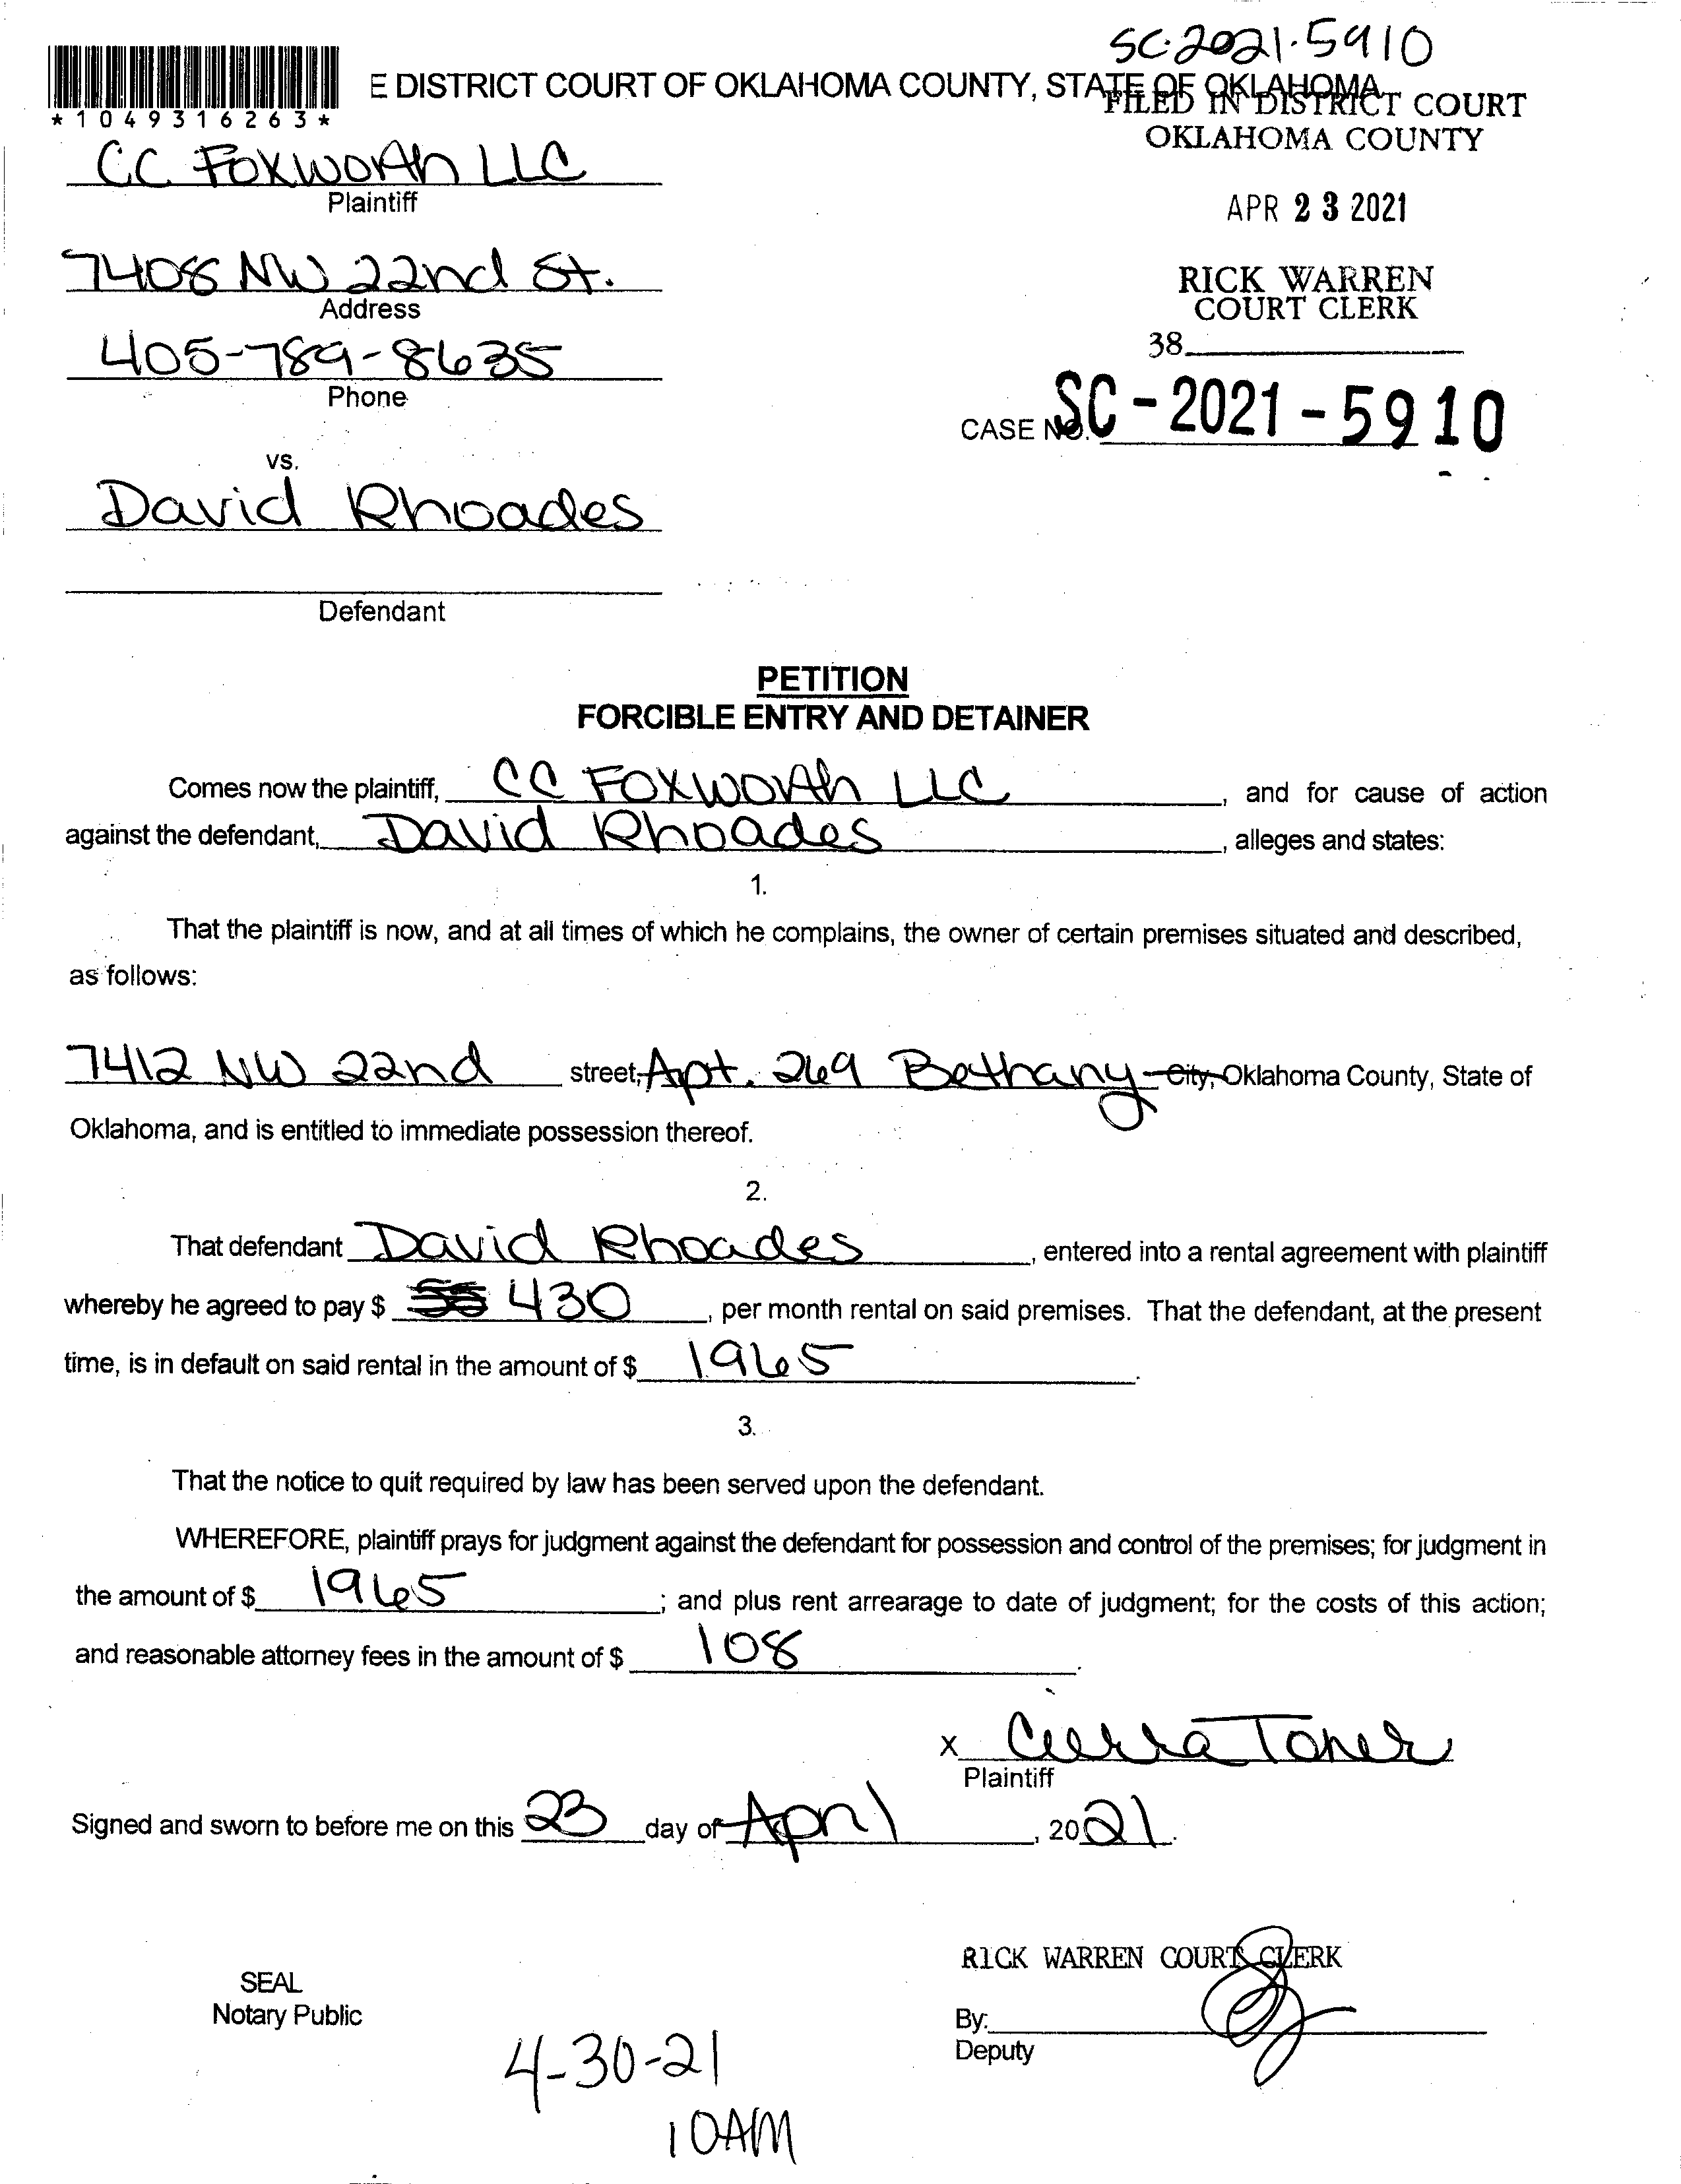 SC-2021-5910
E DISTRICT COURT OF OKLAHOMA COUNTY, STATE OF OKLAHOMA
*1049316263*
FILED IN DISTRICT COURT
OKLAHOMA COUNTY
CC Foxworth LLC
Plaintiff
APR 23 2021
7408 NW 22nd St.
Address
RICK WARREN
COURT CLERK
405-789-8635
Phone
38
CASE NO. SC-2021-5910
vs.
David Rhoades
Defendant
PETITION
FORCIBLE ENTRY AND DETAINER
Comes now the plaintiff, CC Foxworth LLC, and for cause of action
against the defendant, David Rhoades, alleges and states:
1.
That the plaintiff is now, and at all times of which he complains, the owner of certain premises situated and described,
as follows:
7412 NW 22nd street, Apt. 269 Bethany City, Oklahoma County, State of
Oklahoma, and is entitled to immediate possession thereof.
2.
That defendant David Rhoades, entered into a rental agreement with plaintiff
whereby he agreed to pay $ 430, per month rental on said premises. That the defendant, at the present
time, is in default on said rental in the amount of $ 1965.
3.
That the notice to quit required by law has been served upon the defendant.
WHEREFORE, plaintiff prays for judgment against the defendant for possession and control of the premises; for judgment in
the amount of $ 1965; and plus rent arrearage to date of judgment; for the costs of this action;
and reasonable attorney fees in the amount of $ 108.
x Cierra Toner
Plaintiff
Signed and sworn to before me on this 23 day of April, 2021.
RICK WARREN COURT CLERK
SEAL
Notary Public
By:
Deputy
4-30-21
10AM